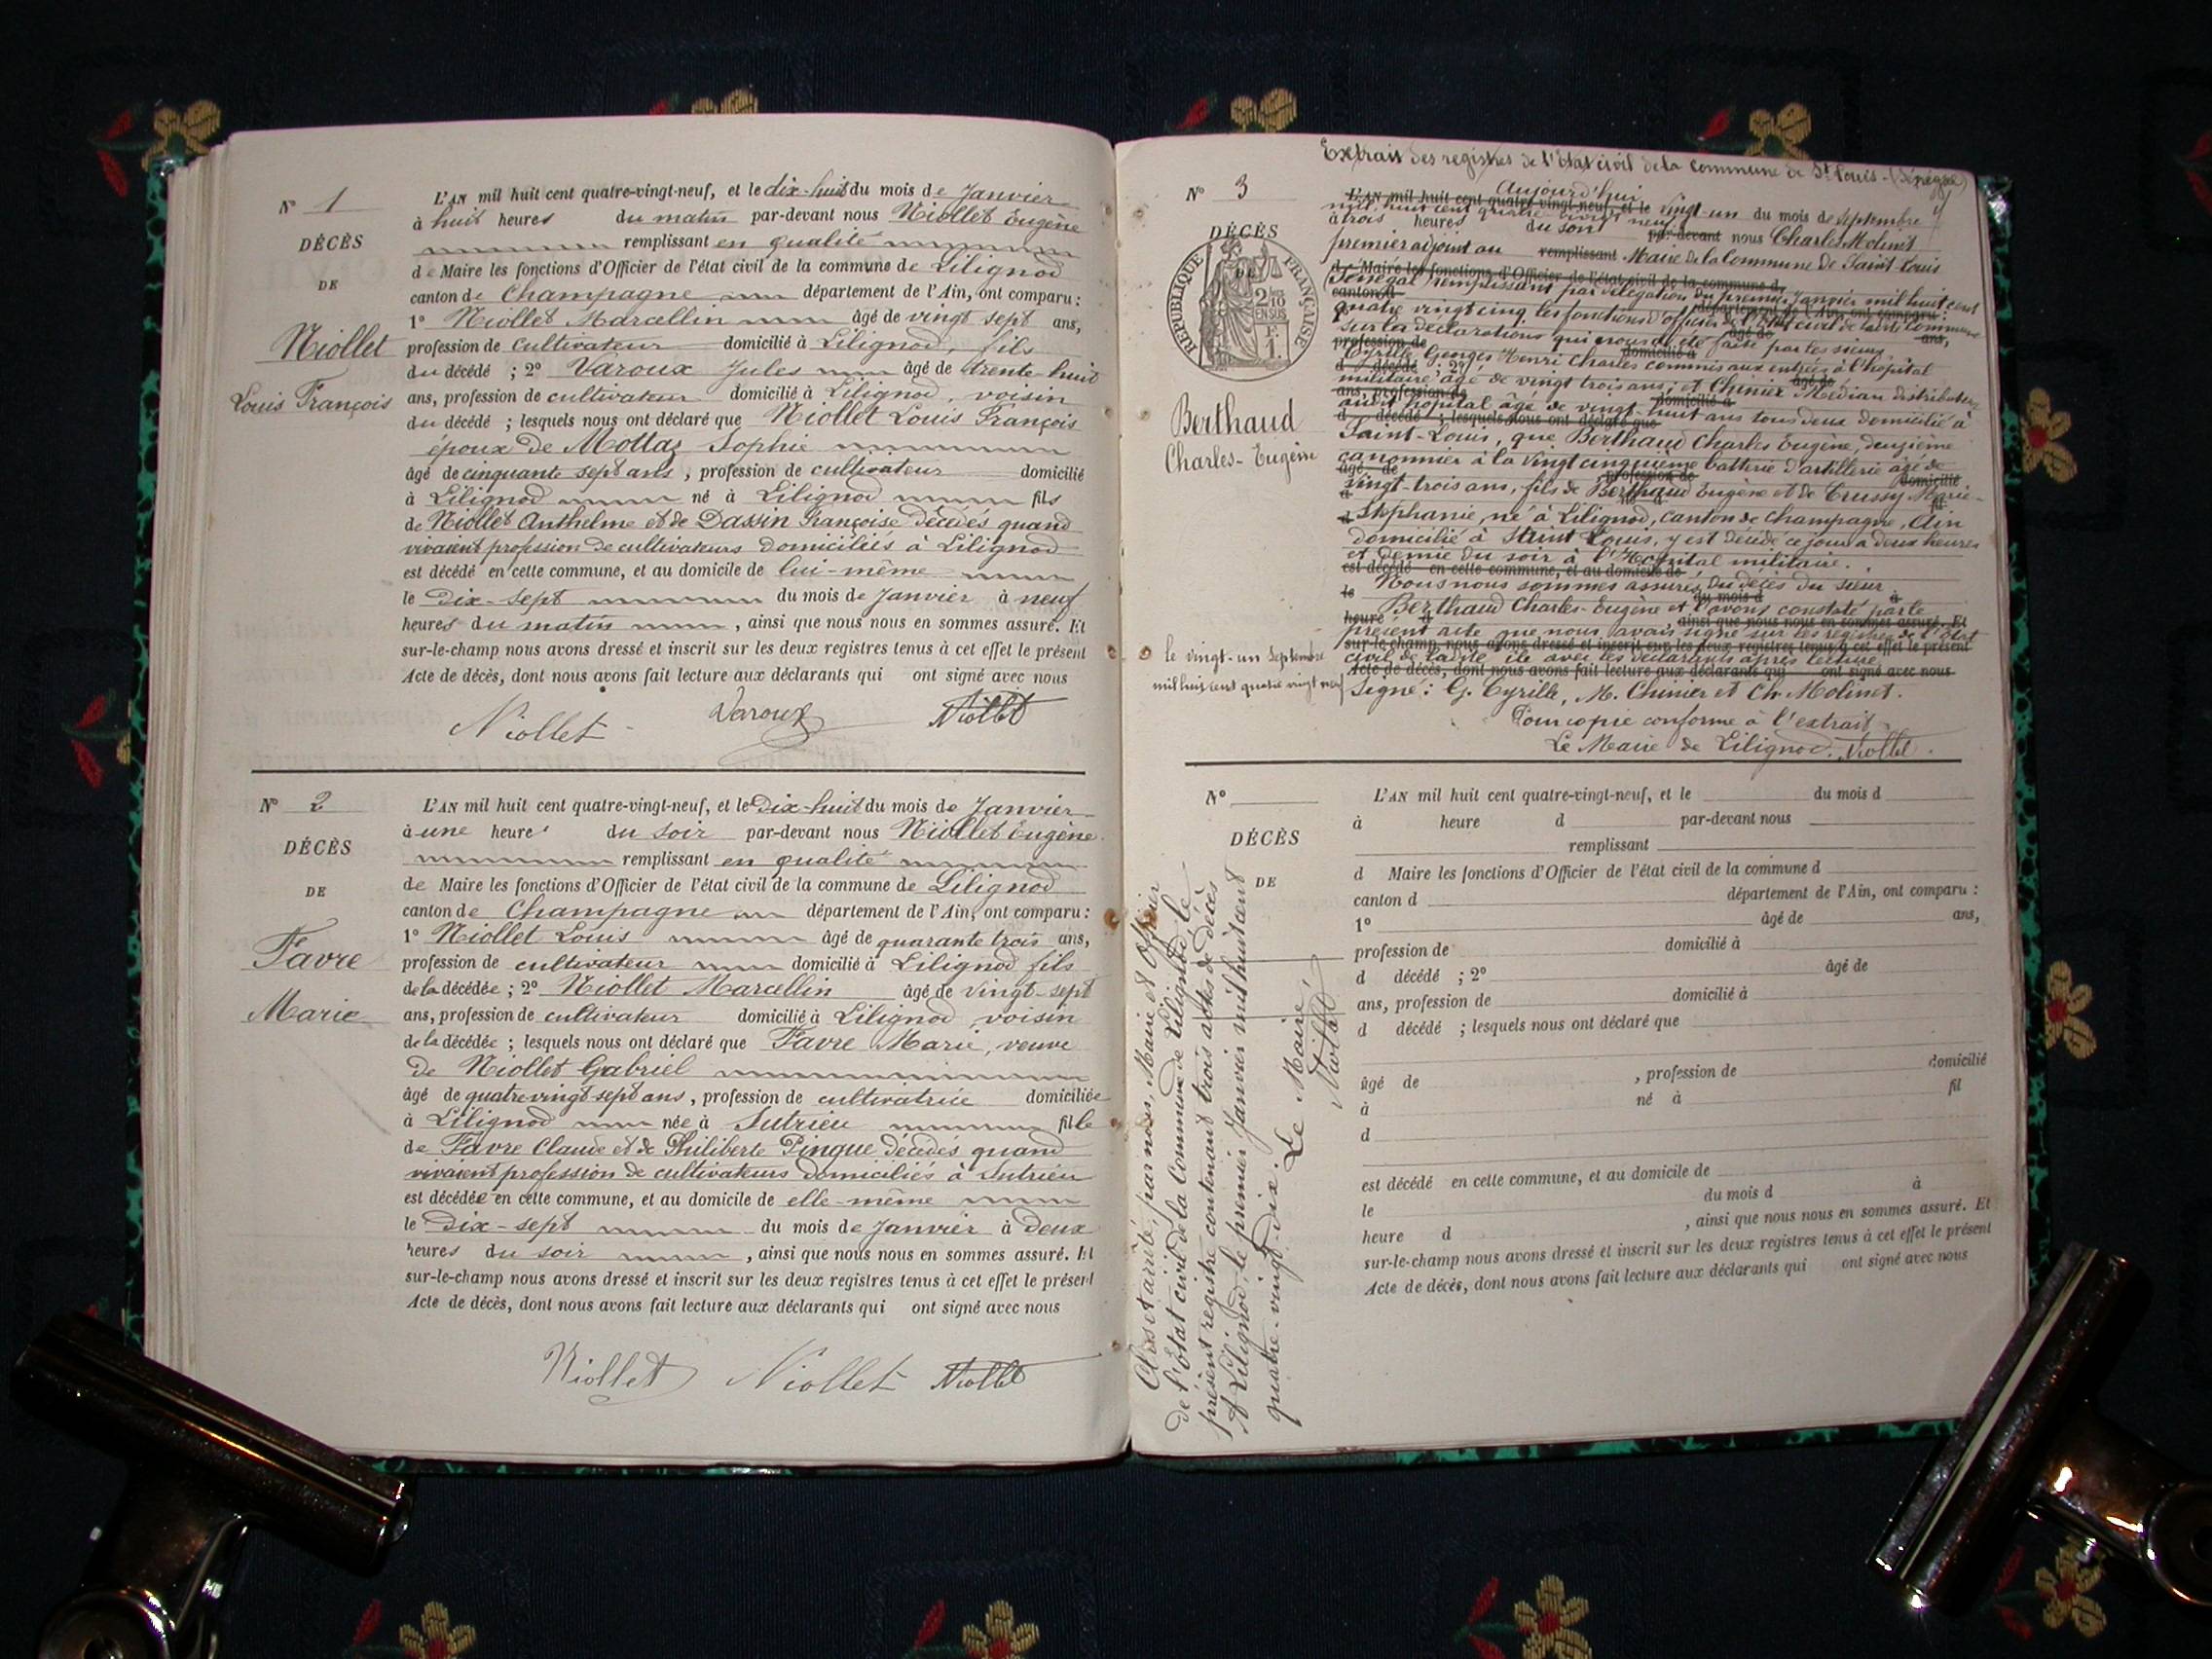 N° 1
DÉCÈS
DE
Niollet
Louis François
L'AN mil huit cent quatre-vingt-neuf, et le dix-huit du mois de Janvier
à huit heures du matin par-devant nous Niollet Eugène
remplissant en qualité
de Maire les fonctions d'Officier de l'état civil de la commune de Lilignod
canton de Champagne département de l'Ain, ont comparu :
1° Niollet Marcellin âgé de vingt sept ans,
profession de cultivateur domicilié à Lilignod, fils
du décédé ; 2° Varoux Jules âgé de trente-huit
ans, profession de cultivateur domicilié à Lilignod, voisin
du décédé ; lesquels nous ont déclaré que Niollet Louis François
époux de Mottaz Sophie
âgé de cinquante sept ans, profession de cultivateur domicilié
à Lilignod né à Lilignod fils
de Niollet Anthelme et de Dassin Françoise décédés quand
vivaient profession de cultivateurs domiciliés à Lilignod
est décédé en cette commune, et au domicile de lui-même
le dix-sept du mois de Janvier à neuf
heures du matin, ainsi que nous nous en sommes assuré. Et
sur-le-champ nous avons dressé et inscrit sur les deux registres tenus à cet effet le présent
Acte de décès, dont nous avons fait lecture aux déclarants qui ont signé avec nous
Niollet Varoux Niollet
N° 2
DÉCÈS
DE
Favre
Marie
L'AN mil huit cent quatre-vingt-neuf, et le Dix-huit du mois de Janvier
à une heure du soir par-devant nous Niollet Eugène
remplissant en qualité
de Maire les fonctions d'Officier de l'état civil de la commune de Lilignod
canton de Champagne département de l'Ain, ont comparu :
1° Niollet Louis âgé de quarante trois ans,
profession de cultivateur domicilié à Lilignod fils
de la décédée ; 2° Niollet Marcellin âgé de vingt-sept
ans, profession de cultivateur domicilié à Lilignod voisin
de la décédée ; lesquels nous ont déclaré que Favre Marie, veuve
de Niollet Gabriel
âgé de quatre vingt-sept ans, profession de cultivatrice domiciliée
à Lilignod née à Sutrieu fille
de Favre Claude et de Philiberte Pinque décédés quand
vivaient profession de cultivateurs domiciliés à Sutrieu
est décédée en cette commune, et au domicile de elle-même
le Dix-sept du mois de Janvier à deux
heures du soir, ainsi que nous nous en sommes assuré. Et
sur-le-champ nous avons dressé et inscrit sur les deux registres tenus à cet effet le présent
Acte de décès, dont nous avons fait lecture aux déclarants qui ont signé avec nous
Niollet Niollet Niollet
Extrait des registres de l'Etat civil de la Commune de St Louis - (Sénégal)
N° 3
DÉCÈS
DE
RÉPUBLIQUE FRANÇAISE
2/10 EN SUS
F. 1.
Berthaud
Charles-Eugène
le vingt-un Septembre
mil huit cent quatre vingt neuf
Aujourd'hui
L'AN mil huit cent quatre-vingt-neuf, et le vingt-un du mois de Septembre
mil huit cent quatre vingt neuf
à trois heures du soir par-devant nous Charles Molinet
premier adjoint au remplissant Maire de la Commune de Saint-Louis
d Maire les fonctions d'Officier de l'état civil de la commune d
(Sénégal) remplissant par délégation du premier Janvier mil huit cent
canton d département de l'Ain, ont comparu :
quatre vingt cinq les fonctions d'officier de l'Etat civil de la dite commune
âgé de ans,
sur la déclarations qui nous a été faite par les sieurs
profession de domicilié à
Cyrille Georges Henri Charles commis aux entrées à l'hôpital
d décédé ; 2° âgé de
militaire âgé de vingt trois ans ; et Chinier Médian distributeur
ans, profession de domicilié à
audit hôpital âgé de vingt-huit ans tous deux domicilié à
d décédé ; lesquels nous ont déclaré que
Saint-Louis, que Berthaud Charles Eugène, deuxième
canonnier à la vingt cinquième batterie d'artillerie âgé de
âgé de profession de domicilié
vingt-trois ans, fils de Berthaud Eugène et de Crussy Marie-
à né à fil
d Stéphanie, né à Lilignod, canton de Champagne, Ain
domicilié à Saint Louis, y est décédé ce jour à deux heures
et demie du soir à l'Hôpital militaire.
est décédé en cette commune, et au domicile de
Nous nous sommes assurés du décès du sieur
le du mois d à
Berthaud Charles-Eugène et l'avons constaté par le
heure d ainsi que nous nous en sommes assuré. Et
présent acte que nous avons signé sur les registres de l'état
sur-le-champ nous avons dressé et inscrit sur les deux registres tenus à cet effet le présent
civil de ladite avec les déclarants après lecture
Acte de décès, dont nous avons fait lecture aux déclarants qui ont signé avec nous
Signé : G. Cyrille, M. Chinier et Ch. Molinet.
Pour copie conforme à l'extrait,
Le Maire de Lilignod. Niollet.
N°
DÉCÈS
DE
L'AN mil huit cent quatre-vingt-neuf, et le du mois d
à heure d par-devant nous
remplissant
d Maire les fonctions d'Officier de l'état civil de la commune d
canton d département de l'Ain, ont comparu :
1° âgé de ans,
profession de domicilié à
d décédé ; 2° âgé de
ans, profession de domicilié à
d décédé ; lesquels nous ont déclaré que
âgé de , profession de domicilié
à né à fil
d
est décédé en cette commune, et au domicile de
le du mois d à
heure d , ainsi que nous nous en sommes assuré. Et
sur-le-champ nous avons dressé et inscrit sur les deux registres tenus à cet effet le présent
Acte de décès, dont nous avons fait lecture aux déclarants qui ont signé avec nous
Clos et arrêté, par nous, Maire et Officier
de l'Etat civil de la Commune de Lilignod le
présent registre contenant trois actes de décès
A Lilignod, le premier Janvier mil huit cent
quatre-vingt-dix. Le Maire,
Niollet